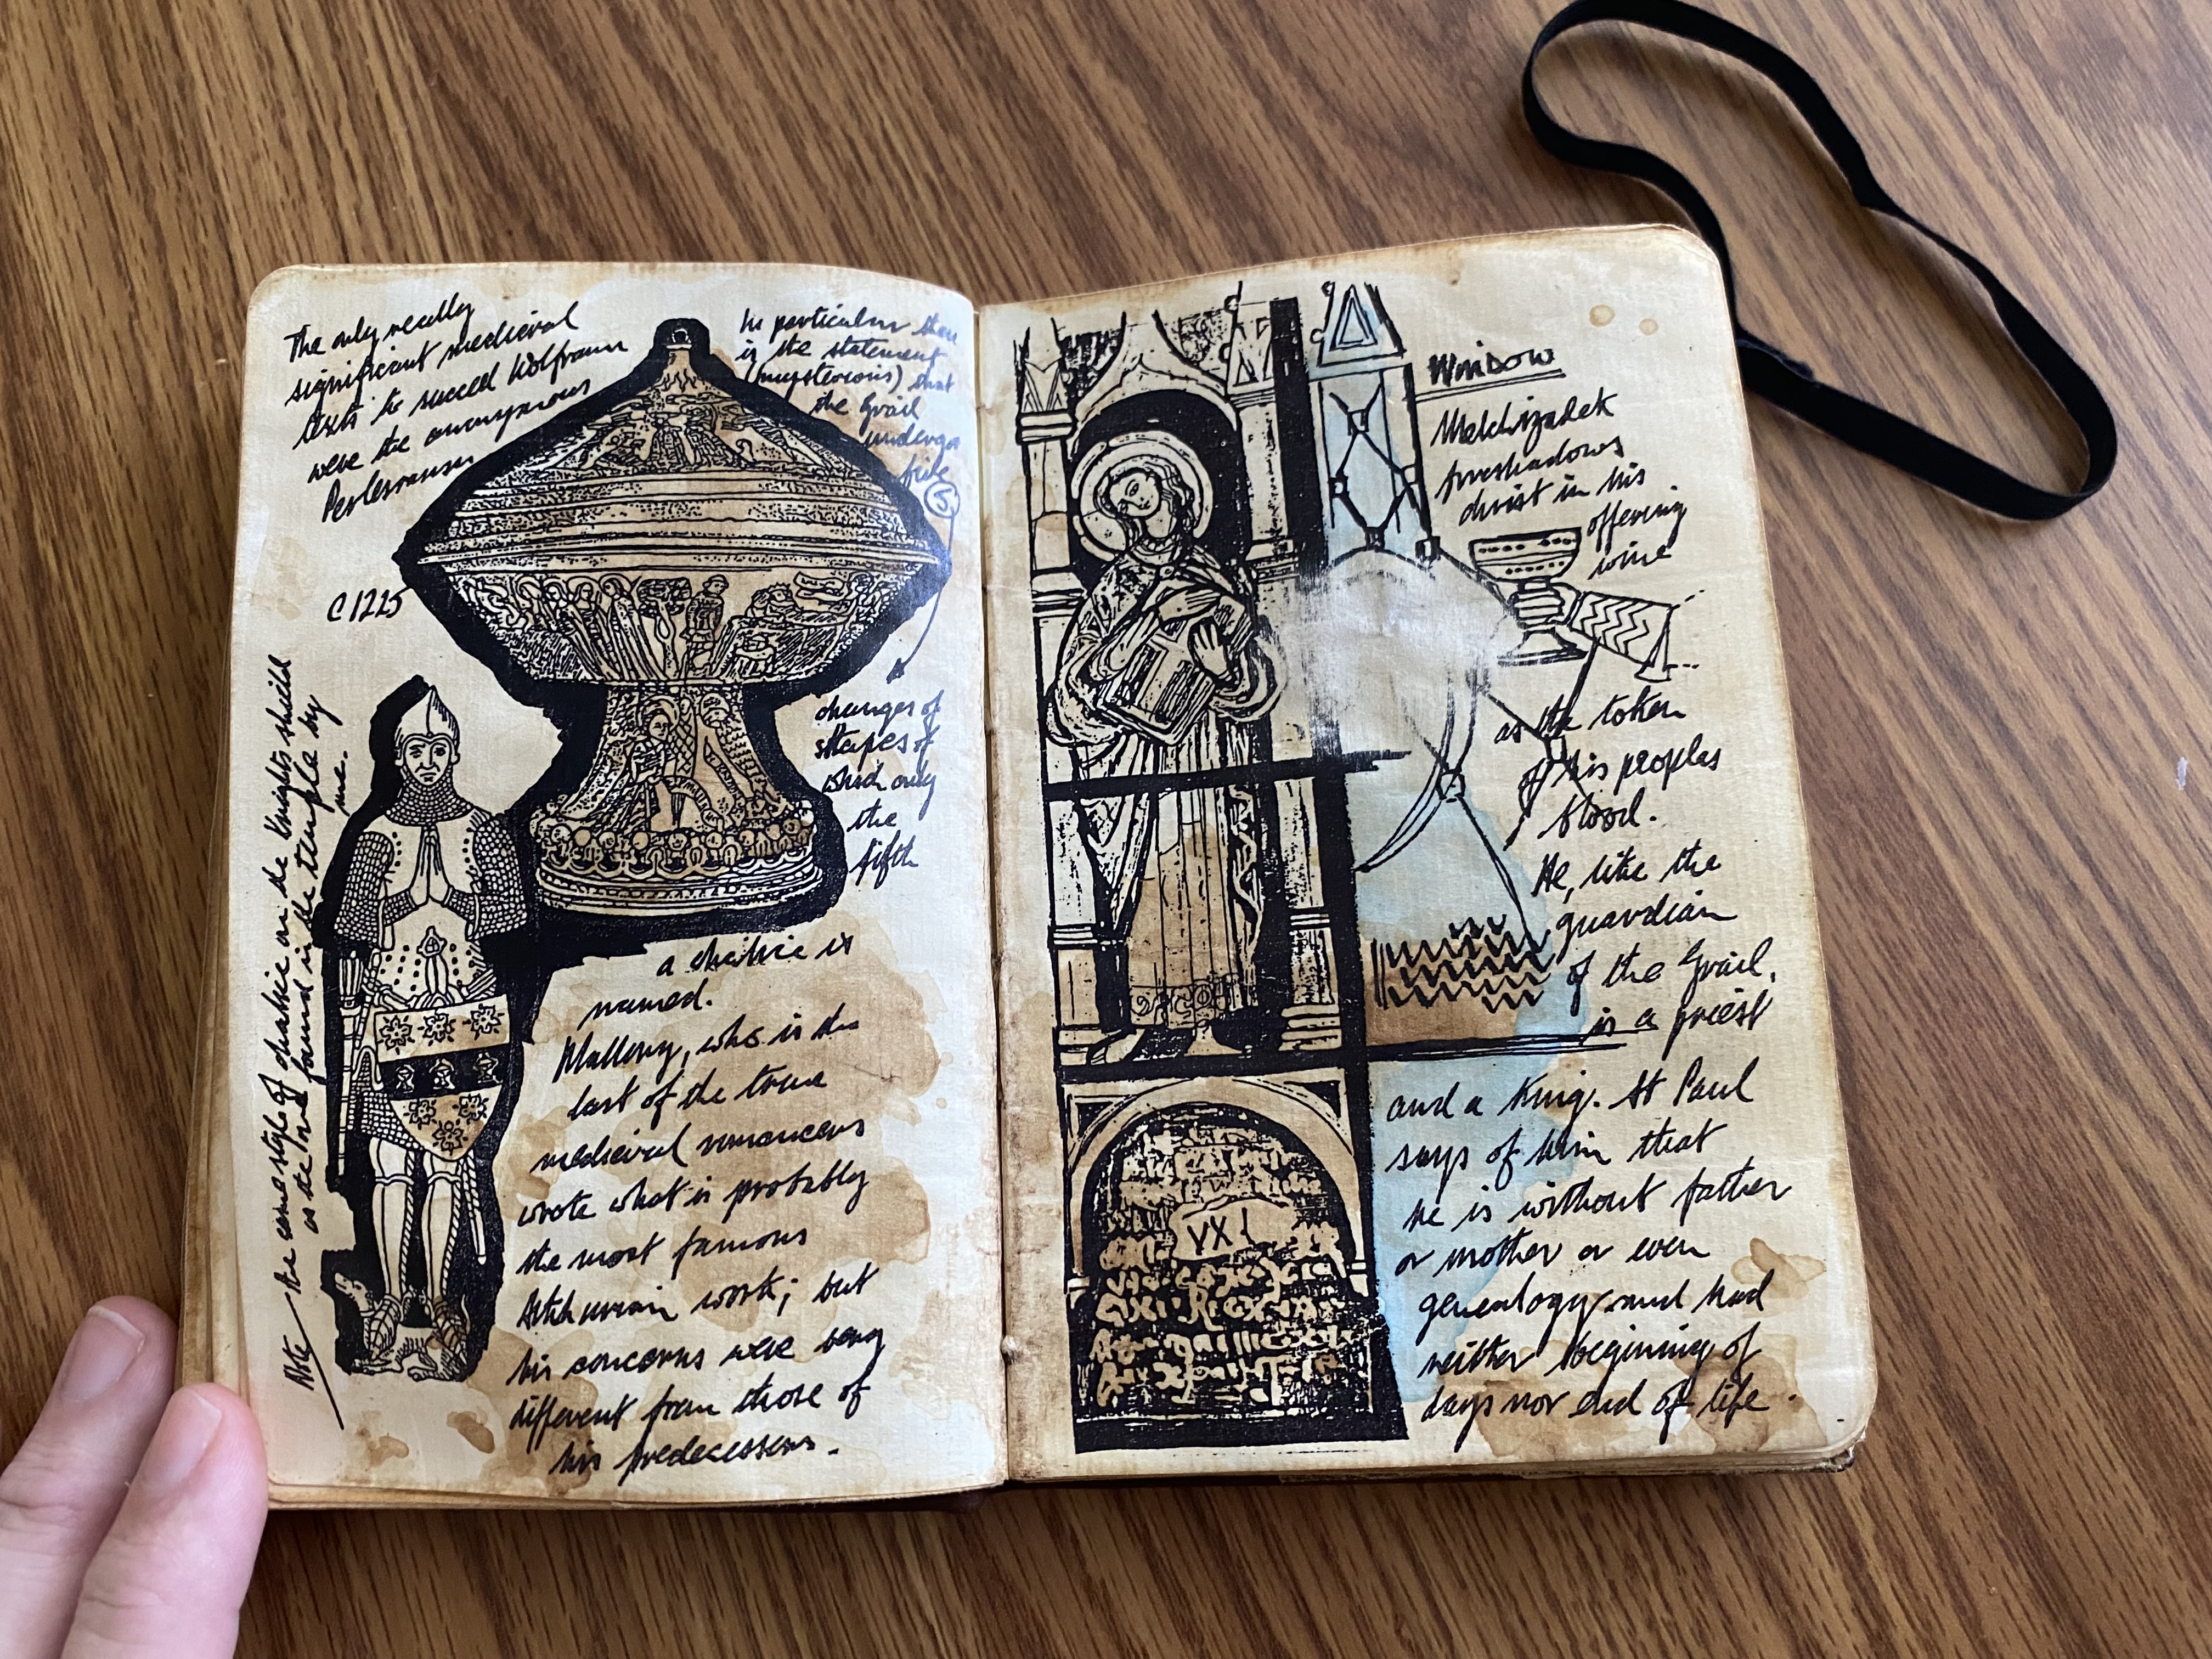 The only really
significant medieval
texts to succeed Wolfram
were the anonymous
Perlesvaus
C1225
In particular there
is the statement
(mysterious) that
the Grail
undergoes
five
5
changes of
shapes of
which only
the
fifth
a chalice is
named.
Mallory, who is the
last of the true
medieval romancers
wrote what is probably
the most famous
Arthurian work; but
his concerns were very
different from those of
his predecessors.
Note the same style of chalice on the Knights shield
as the one found in the temple by
me.
WINDOW
Melchizadek
foreshadows
christ in his
offering
wine
as the token
of his peoples
blood.
He, like the
guardian
of the Grail,
is a priest
and a King. St Paul
says of him that
he is without father
or mother or even
genealogy and had
neither beginning of
days nor end of life.
VXI